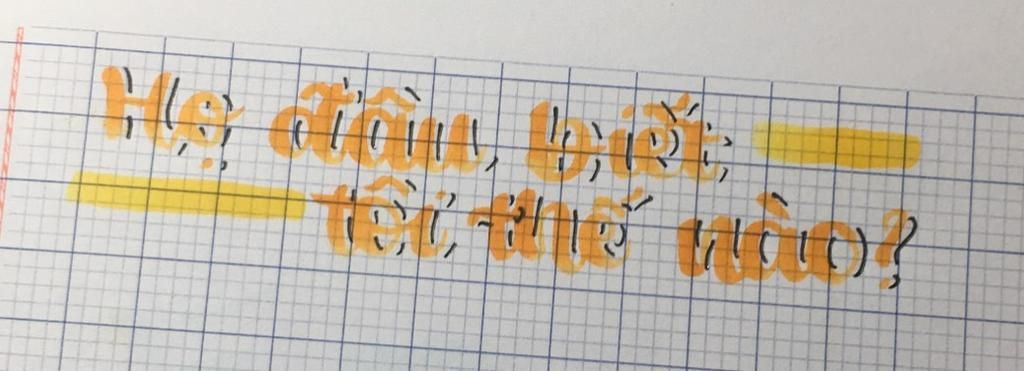 Họ đâu biết
tôi thế nào?